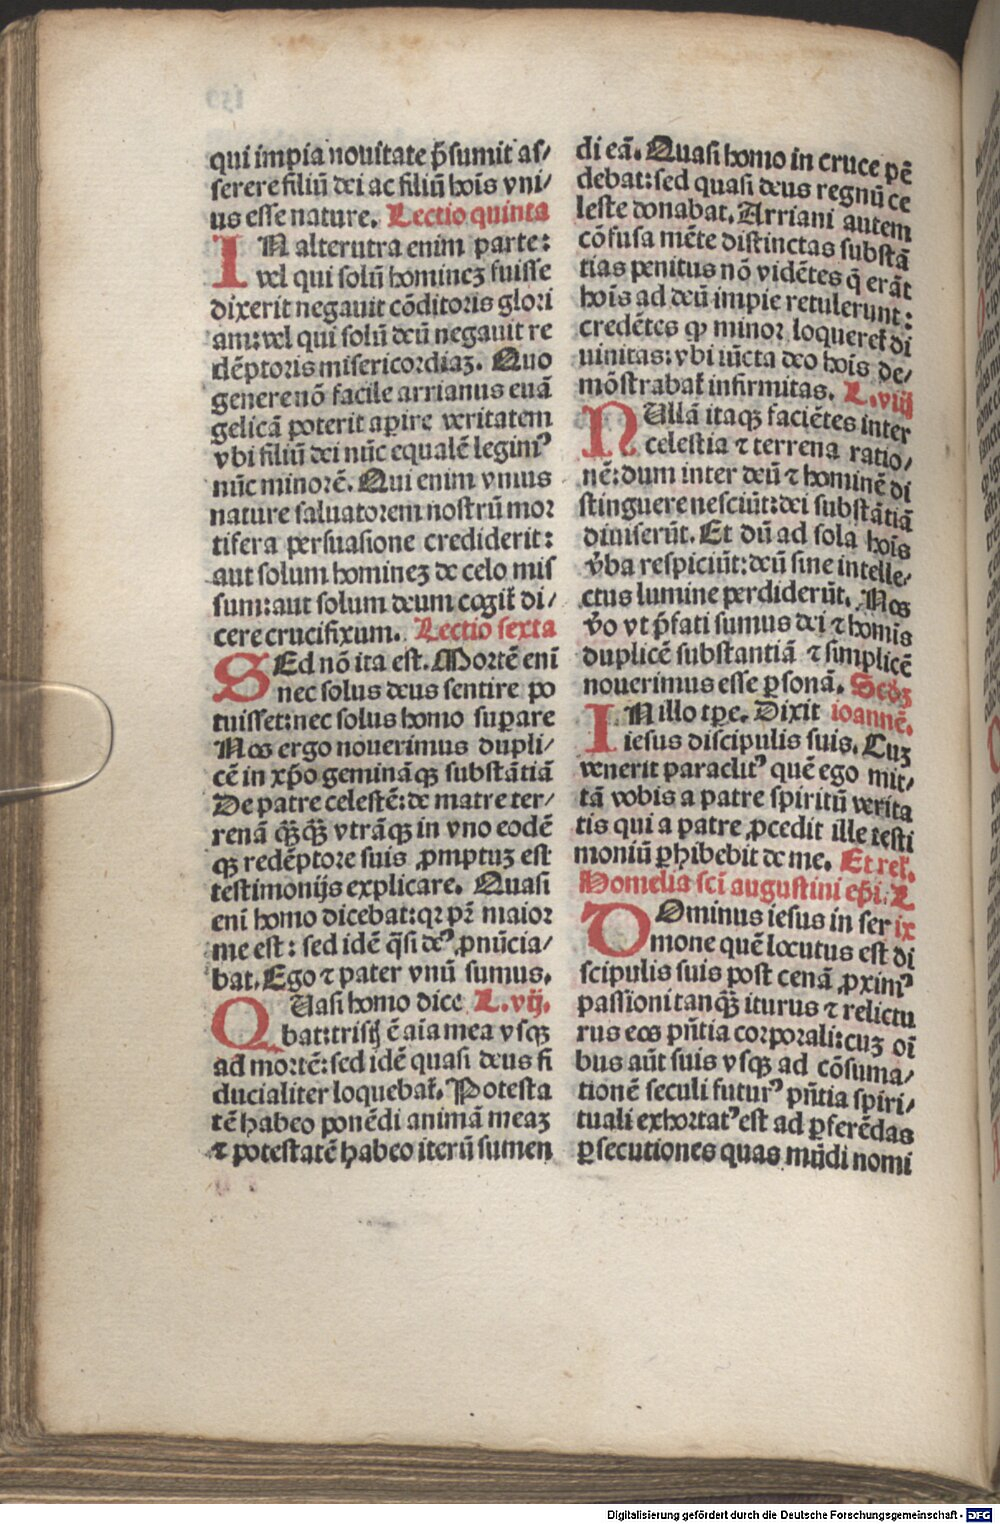 qui impia nouitate p̄sumit as/
serere filiū dei ac filiū hoīs vni/
us esse nature. Lectio quinta
IN alterutra enim parte:
vel qui solū hominez fuisse
dixerit negauit cōditoris glori
am: vel qui solū deū negauit re
dēptoris misericordiaz. Quo
genere nō facile arrianus euā
gelicā poterit aperire veritatem
vbi filiū dei nūc equalē legimꝰ
nūc minorē. Qui enim vnius
nature saluatorem nostrū mor
tifera persuasione crediderit:
aut solum hominez de celo mis
sum: aut solum deum cogit᷑ di/
cere crucifixum. Lectio sexta
SEd nō ita est. Mortē eni᷑
nec solus deus sentire po
tuisset: nec solus homo suꝑare
Nos ergo nouerimus dupli/
cē in xp̄o gemināqꝫ substātiā
De patre celestē: de matre ter/
renā qꝫ̄qꝫ̄ vtrāqꝫ in vno eodē
qꝫ redēptore suis ꝓmptuz est
testimonijs explicare. Quasi
eni᷑ homo dicebat: qꝛ pr̄ maior
me est: sed idē q̄si deꝰ ꝓnūcia/
bat. Ego ⁊ pater vnū sumus.
QVasi homo dice L. vij.
bat: tristꝭ ē aīa mea vsqꝫ
ad mortē: sed idē quasi deus fi
ducialiter loquebat᷑. Potesta
tē habeo ponēdi animā meaz
⁊ potestatē habeo iterū sumen
di eā. Quasi homo in cruce pē
debat: sed quasi deus regnū ce
leste donabat. Arriani autem
cōfusa mēte distinctas substā
tias penitus nō vidētes q̄ erāt
hoīs ad deū impie retulerunt:
credētes ꝙ minor loqueret᷑ di
uinitas: vbi iūcta deo hoīs de/
mōstrabat᷑ infirmitas. L. viij
NUllā itaqꝫ faciētes inter
celestia ⁊ terrena ratio/
nē: dum inter deū ⁊ hominē di
stinguere nesciūt: dei substātiā
diuiserūt. Et dū ad sola hoīs
v̄ba respiciūt: deū sine intelle/
ctus lumine perdiderūt. Nos
v̄o vt p̄fati sumus dei ⁊ homīs
duplicē substantiā ⁊ simplicē
nouerimus esse ꝑsonā. Scd̄z
IN illo tꝑe. Dixit ioannē.
iesus discipulis suis. Cuz
venerit paraclitꝰ quē ego mit/
tā vobis a patre spiritū verita
tis qui a patre ꝓcedit ille testi
moniū ꝑhibebit de me. Et rel᷑.
Homelia scī augustini ep̄i. L
DOminus iesus in ser ix
mone quē locutus est di
scipulis suis post cenā ꝓximꝰ
passioni tanqꝫ̄ iturus ⁊ relictu
rus eos pn̄tia corporali: cuz oī
bus aūt suis vsqꝫ ad cōsuma/
tionē seculi futurꝰ pn̄tia spiri/
tuali exhortatꝰ est ad ꝑferēdas
ꝑsecutiones quas mūdi nomi
Digitalisierung gefördert durch die Deutsche Forschungsgemeinschaft - DFG